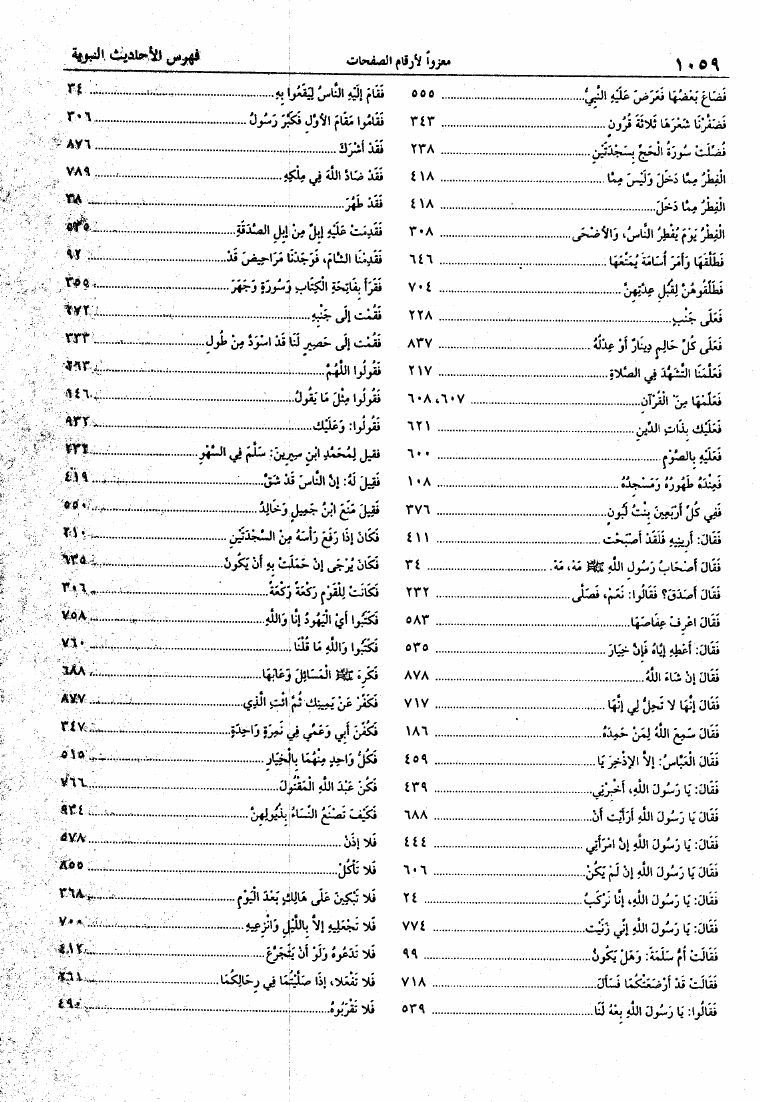 ١٠٥٩ معزواً لأرقام الصفحات فهرس الأحاديث النبوية
فَضَاعَ بَعْضُهَا فَعَرَضَ عَلَيْهِ النَّبِيُّ ٥٥٥
فَضَفَرْنَا شَعْرَهَا ثَلَاثَةَ قُرُونٍ ٣٤٣
فُضِّلَتْ سُورَةُ الْحَجِّ بِسَجْدَتَيْنِ ٢٣٨
الْفِطْرُ مِمَّا دَخَلَ وَلَيْسَ مِمَّا ٤١٨
الْفِطْرُ مِمَّا دَخَلَ ٤١٨
الْفِطْرُ يَوْمَ يُفْطِرُ النَّاسُ، وَالأَضْحَى ٣٠٨
فَطَلَّقَهَا وَأَمَرَ أُسَامَةَ يُمَتِّعُهَا ٦٤٦
فَطَلِّقُوهُنَّ لِقُبُلِ عِدَّتِهِنَّ ٧٠٤
فَعَلَى جَنْبٍ ٢٢٨
فَعَلَى كُلِّ حَالِمٍ دِينَارٌ أَوْ عِدْلُهُ ٨٣٧
فَعَلَّمَنَا التَّشَهُّدَ فِي الصَّلاةِ ٢١٧
فَعَلِّمْهَا مِنَ الْقُرْآنِ ٦٠٧، ٦٠٨
فَعَلَيْكَ بِذَاتِ الدِّينِ ٦٢١
فَعَلَيْهِ بِالصَّوْمِ ٦٠٠
فَعِنْدَهُ طَهُورُهُ وَمَسْجِدُهُ ١٠٨
فَفِي كُلِّ أَرْبَعِينَ بِنْتُ لَبُونٍ ٣٧٦
فَقَالَ: أَرِينِيهِ فَلَقَدْ أَصْبَحْت ٤١١
فَقَالَ أَصْحَابُ رَسُولِ اللَّهِ ﷺ مَهْ، مَهْ. ٣٤
فَقَالَ أَصَدَقَ؟ فَقَالُوا: نَعَمْ، فَصَلَّى ٢٣٢
فَقَالَ اعْرِفْ عِفَاصَهَا ٥٨٣
فَقَالَ: أَعْطِهِ إيَّاهُ فَإِنَّ خِيَارَ ٥٣٥
فَقَالَ إنْ شَاءَ اللَّهُ ٨٧٨
فَقَالَ إنَّهَا لا تَحِلُّ لِي إنَّهَا ٧١٧
فَقَالَ سَمِعَ اللَّهُ لِمَنْ حَمِدَهُ ١٨٦
فَقَالَ الْعَبَّاسُ: إلاَّ الإِذْخِرَ يَا ٤٥٩
فَقَالَ: يَا رَسُولَ اللَّهِ، أَخْبِرْنِي ٤٣٩
فَقَالَ يَا رَسُولَ اللَّهِ أَرَأَيْت أَنْ ٦٨٨
فَقَالَ: يَا رَسُولَ اللَّهِ إنَّ امْرَأَتِي ٤٤٤
فَقَالَ يَا رَسُولَ اللَّهِ إنْ لَمْ يَكُنْ ٦٠٦
فَقَالَ: يَا رَسُولَ اللَّهِ، إنَّا نَرْكَبُ ٢٤
فَقَالَ: يَا رَسُولَ اللَّهِ إنِّي زَنَيْت ٧٧٤
فَقَالَتْ أُمُّ سَلَمَةَ: وَهَلْ يَكُونُ ٩٩
فَقَالَتْ قَدْ أَرْضَعْتُكُمَا فَسَأَلَ ٧١٨
فَقَالُوا: يَا رَسُولَ اللَّهِ بِعْهُ لَنَا ٥٣٩
فَقَامَ إلَيْهِ النَّاسُ لِيَقَعُوا بِهِ ٣٤
فَقَامُوا مَقَامَ الأَوَّلِ فَكَبَّرَ رَسُولُ ٣٠٦
فَقَدْ أَشْرَكَ ٨٧٦
فَقَدْ ضَادَّ اللَّهَ فِي مِلْكِهِ ٧٨٩
فَقَدْ طَهُرَ ٣٨
فَقَدِمَتْ عَلَيْهِ إبِلٌ مِنْ إبِلِ الصَّدَقَةِ ٥٣٥
فَقَدِمْنَا الشَّامَ، فَوَجَدْنَا مَرَاحِيضَ قَدْ ٩٢
فَقَرَأَ بِفَاتِحَةِ الْكِتَابِ وَسُورَةٍ وَجَهَرَ ٣٥٥
فَقُمْت إلَى جَنْبِهِ ٢٧٢
فَقُمْت إلَى حَصِيرٍ لَنَا قَدْ اسْوَدَّ مِنْ طُولِ ٣٣٣
فَقُولُوا اللَّهُمَّ
فَقُولُوا مِثْلَ مَا يَقُولُ ١٤٦
فَقُولُوا: وَعَلَيْك ٩٣٢
فقيل لِمُحَمَّدِ ابنِ سِيرِينَ: سَلَّمَ فِي السَّهْوِ ٢٣٦
فَقِيلَ لَهُ: إنَّ النَّاسَ قَدْ شَقَّ ٤١٩
فَقِيلَ مَنَعَ ابْنُ جَمِيلٍ وَخَالِدُ ٥٥٠
فَكَانَ إذَا رَفَعَ رَأْسَهُ مِنْ السَّجْدَتَيْنِ ٢١٠
فَكَانَ يُرْجَى إنْ حَمَلَتْ بِهِ أَنْ يَكُونَ ٦٣٥
فَكَانَتْ لِلْقَوْمِ رَكْعَةٌ رَكْعَةٌ ٣٠٦
فَكَتَبُوا أَيْ الْيَهُودُ إنَّا وَاللَّهِ ٧٥٨
فَكَتَبُوا وَاللَّهِ مَا قُلْنَا ٧٦٠
فَكَرِهَ ﷺ الْمَسَائِلَ وَعَابَهَا ٦٨٨
فَكَفِّرْ عَنْ يَمِينِك ثُمَّ ائْتِ الَّذِي ٨٧٧
فَكُفِّنَ أَبِي وَعَمِّي فِي نَمِرَةٍ وَاحِدَةٍ ٣٤٧
فَكُلُّ وَاحِدٍ مِنْهُمَا بِالْخِيَارِ ٥١٥
فَكُنْ عَبْدَ اللَّهِ الْمَقْتُولَ ٧٦٦
فَكَيْفَ تَصْنَعُ النِّسَاءُ بِذُيُولِهِنَّ ٩٣٤
فَلا إذَنْ ٥٧٨
فَلا تَأْكُلْ ٨٥٥
فَلا تَبْكِينَ عَلَى هَالِكٍ بَعْدَ الْيَوْمِ ٣٦٨
فَلا تَجْعَلِيهِ إلاَّ بِاللَّيْلِ وَانْزِعِيهِ ٧٠٠
فَلا تَدَعُوهُ وَلَوْ أَنْ يَتَجَرَّعَ ٤١٢
فَلا تَفْعَلا، إذَا صَلَّيْتُمَا فِي رِحَالِكُمَا ٢٦١
فَلا تَقْرَبُوهُ ٤٩٠